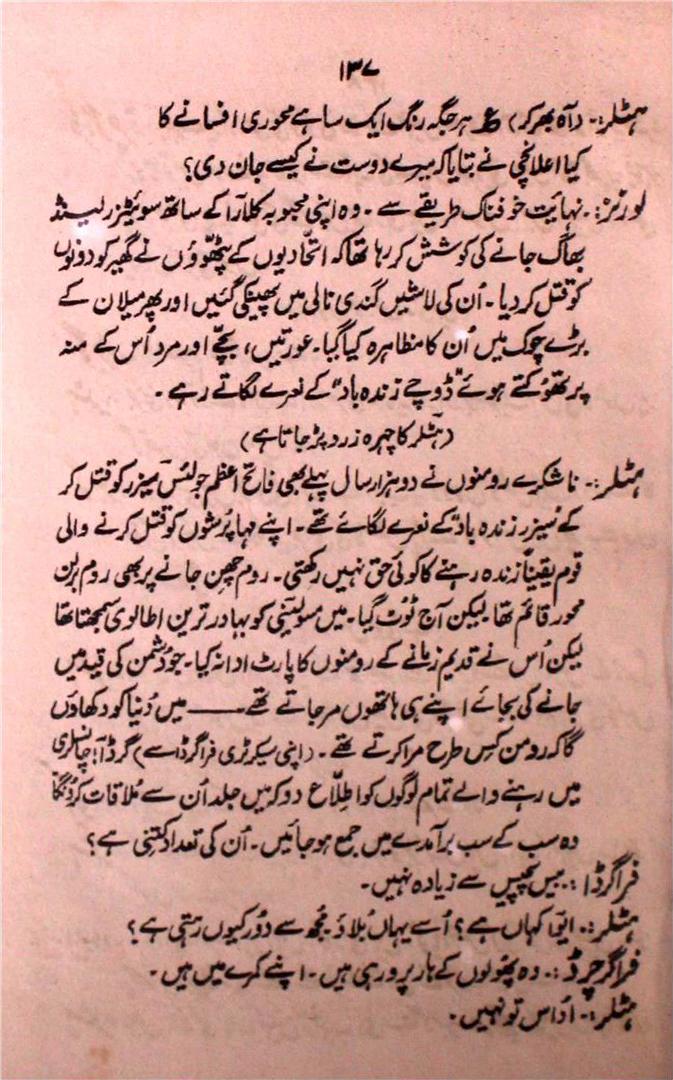 ۱۳۷
ہٹلر:۔ (آہ بھر کر) ؏ ہر جگہ رنگ ایک سا ہے محوری افسانے کا
کیا اعلانچی نے بتایا کہ میرے دوست نے کیسے جان دی؟
لورنز:۔ نہایت خوفناک طریقے سے۔ وہ اپنی محبوبہ کلارا کے ساتھ سوئیٹزر لینڈ
بھاگ جانے کی کوشش کر رہا تھا کہ اتحادیوں کے پٹھوؤں نے گھیر کو دونوں
کو قتل کر دیا۔ اُن کی لاشیں گندی نالی میں پھینکی گئیں اور پھر میلان کے
بڑے چوک میں اُن کا مظاہرہ کیا گیا۔ عورتیں، بچے اور مرد اُس کے منہ
پر تھوکتے ہوئے "ڈوچے زندہ باد" کے نعرے لگاتے رہے۔
(ہٹلر کا چہرہ زرد پڑ جاتا ہے)
ہٹلر:۔ ناشکرے رومنوں نے دو ہزار سال پہلے بھی فاتح اعظم جولئس سیزر کو قتل کر
کے "سیزر زندہ باد" کے نعرے لگائے تھے۔ اپنے مہاپرشوں کو قتل کرنے والی
قوم یقیناً زندہ رہنے کا کوئی حق نہیں رکھتی۔ روم چھن جانے پر بھی روم برلن
محور قائم تھا لیکن آج ٹوٹ گیا۔ میں مسولینی کو بہادر ترین اطالوی سمجھتا تھا
لیکن اُس نے قدیم زمانے کے رومنوں کا پارٹ ادا نہ کیا۔ جو دشمن کی قید میں
جانے کی بجائے اپنے ہی ہاتھوں مر جاتے تھے —— میں دُنیا کو دکھاؤں
گا کہ رومن کس طرح مرا کرتے تھے۔ (اپنی سیکرٹری فراگرڈا سے) گرڈا! چانسلری
میں رہنے والے تمام لوگوں کو اطلاع دو کہ میں جلد اُن سے مُلاقات کرونگا
وہ سب کے سب برآمدے میں جمع ہو جائیں۔ اُن کی تعداد کتنی ہے؟
فراگرڈا:۔ بیس پچیس سے زیادہ نہیں۔
ہٹلر:۔ ایوا کہاں ہے؟ اُسے یہاں بُلاؤ۔ مجُھ سے دُور کیوں رہتی ہے؟
فراگرچرڈ:۔ وہ پھُولوں کے ہار پرو رہی ہیں۔ اپنے کمرے میں ہیں۔
ہٹلر:۔ اُداس تو نہیں۔